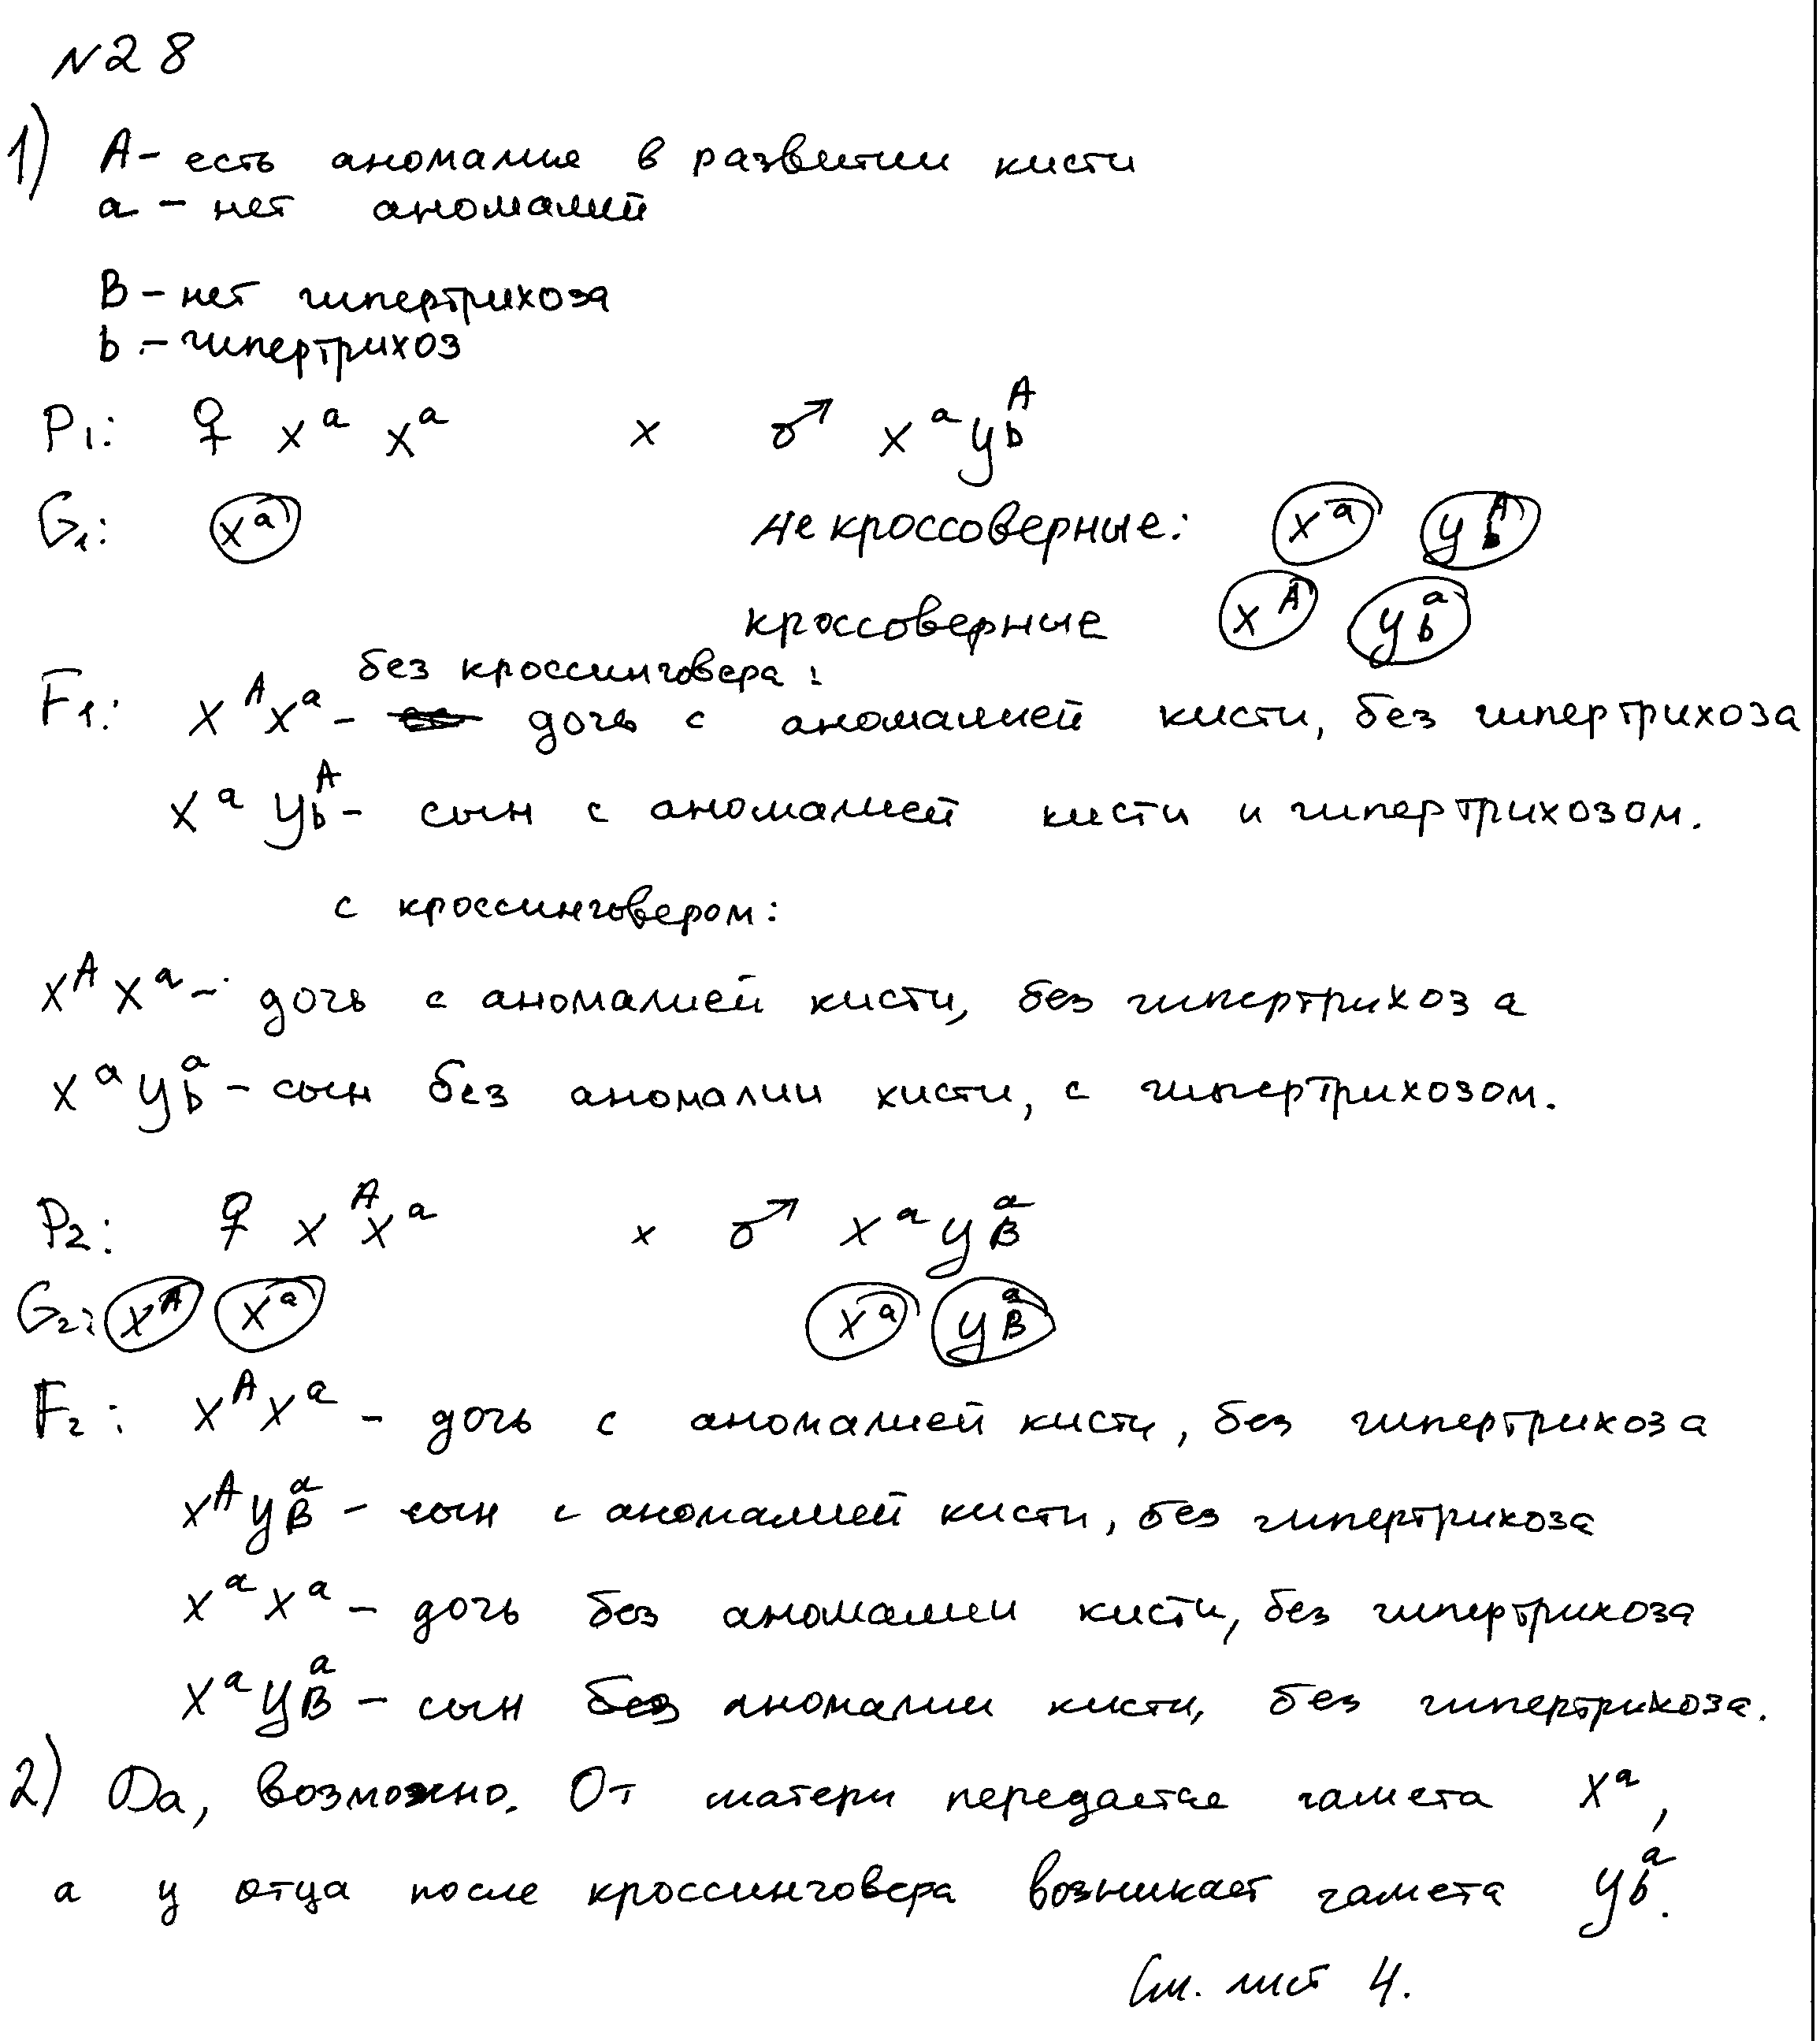 №28
1) A - есть аномалия в развитии кисти
a - нет аномалий
B - нет гипертрихоза
b - гипертрихоз
P₁: ♀ XᵃXᵃ × ♂ XᵃYbᴬ
G₁: Xᵃ Не кроссоверные: Xᵃ Ybᴬ
кроссоверные Xᴬ Ybᵃ
без кроссинговера:
F₁: XᴬXᵃ - дочь с аномалией кисти, без гипертрихоза
XᵃYbᴬ - сын с аномалией кисти и гипертрихозом.
с кроссинговером:
XᴬXᵃ - дочь с аномалией кисти, без гипертрихоза
XᵃYbᵃ - сын без аномалии кисти, с гипертрихозом.
P₂: ♀ XᴬXᵃ × ♂ XᵃYBᵃ
G₂: Xᴬ Xᵃ Xᵃ YBᵃ
F₂: XᴬXᵃ - дочь с аномалией кисти, без гипертрихоза
XᴬYBᵃ - сын с аномалией кисти, без гипертрихоза
XᵃXᵃ - дочь без аномалии кисти, без гипертрихоза
XᵃYBᵃ - сын без аномалии кисти, без гипертрихоза.
2) Да, возможно. От матери передается гамета Xᵃ,
а у отца после кроссинговера возникает гамета Ybᵃ.
См. лист 4.